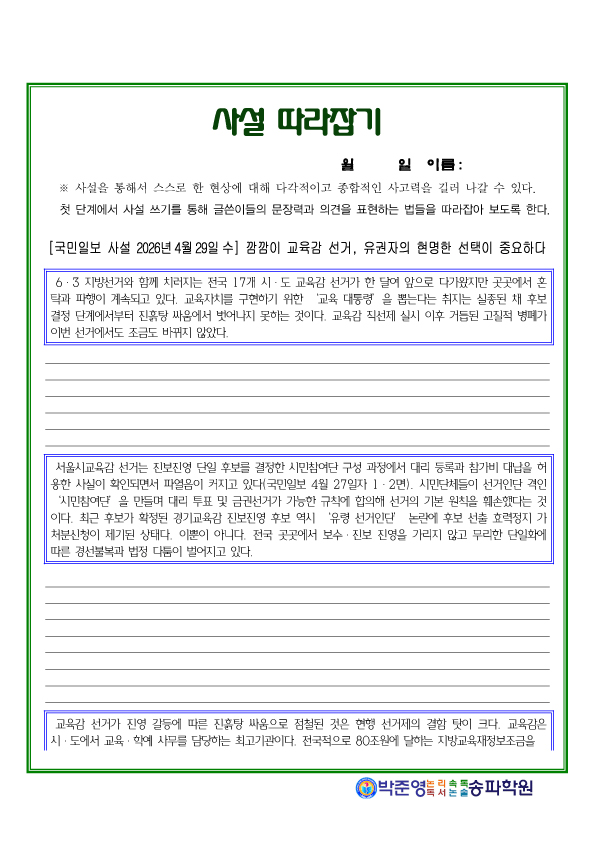 사설 따라잡기
월 일 이름:
※ 사설을 통해서 스스로 한 현상에 대해 다각적이고 종합적인 사고력을 길러 나갈 수 있다.
첫 단계에서 사설 쓰기를 통해 글쓴이들의 문장력과 의견을 표현하는 법들을 따라잡아 보도록 한다.
[국민일보 사설 2026년 4월 29일 수] 깜깜이 교육감 선거, 유권자의 현명한 선택이 중요하다
6·3 지방선거와 함께 치러지는 전국 17개 시·도 교육감 선거가 한 달여 앞으로 다가왔지만 곳곳에서 혼
탁과 파행이 계속되고 있다. 교육자치를 구현하기 위한 ‘교육 대통령’을 뽑는다는 취지는 실종된 채 후보
결정 단계에서부터 진흙탕 싸움에서 벗어나지 못하는 것이다. 교육감 직선제 실시 이후 거듭된 고질적 병폐가
이번 선거에서도 조금도 바뀌지 않았다.
서울시교육감 선거는 진보진영 단일 후보를 결정한 시민참여단 구성 과정에서 대리 등록과 참가비 대납을 허
용한 사실이 확인되면서 파열음이 커지고 있다(국민일보 4월 27일자 1·2면). 시민단체들이 선거인단 격인
‘시민참여단’을 만들며 대리 투표 및 금권선거가 가능한 규칙에 합의해 선거의 기본 원칙을 훼손했다는 것
이다. 최근 후보가 확정된 경기교육감 진보진영 후보 역시 ‘유령 선거인단’ 논란에 후보 선출 효력정지 가
처분신청이 제기된 상태다. 이뿐이 아니다. 전국 곳곳에서 보수·진보 진영을 가리지 않고 무리한 단일화에
따른 경선불복과 법정 다툼이 벌어지고 있다.
교육감 선거가 진영 갈등에 따른 진흙탕 싸움으로 점철된 것은 현행 선거제의 결함 탓이 크다. 교육감은
시·도에서 교육·학예 사무를 담당하는 최고기관이다. 전국적으로 80조원에 달하는 지방교육재정보조금을
박준영 논리속독 독서논술 송파학원